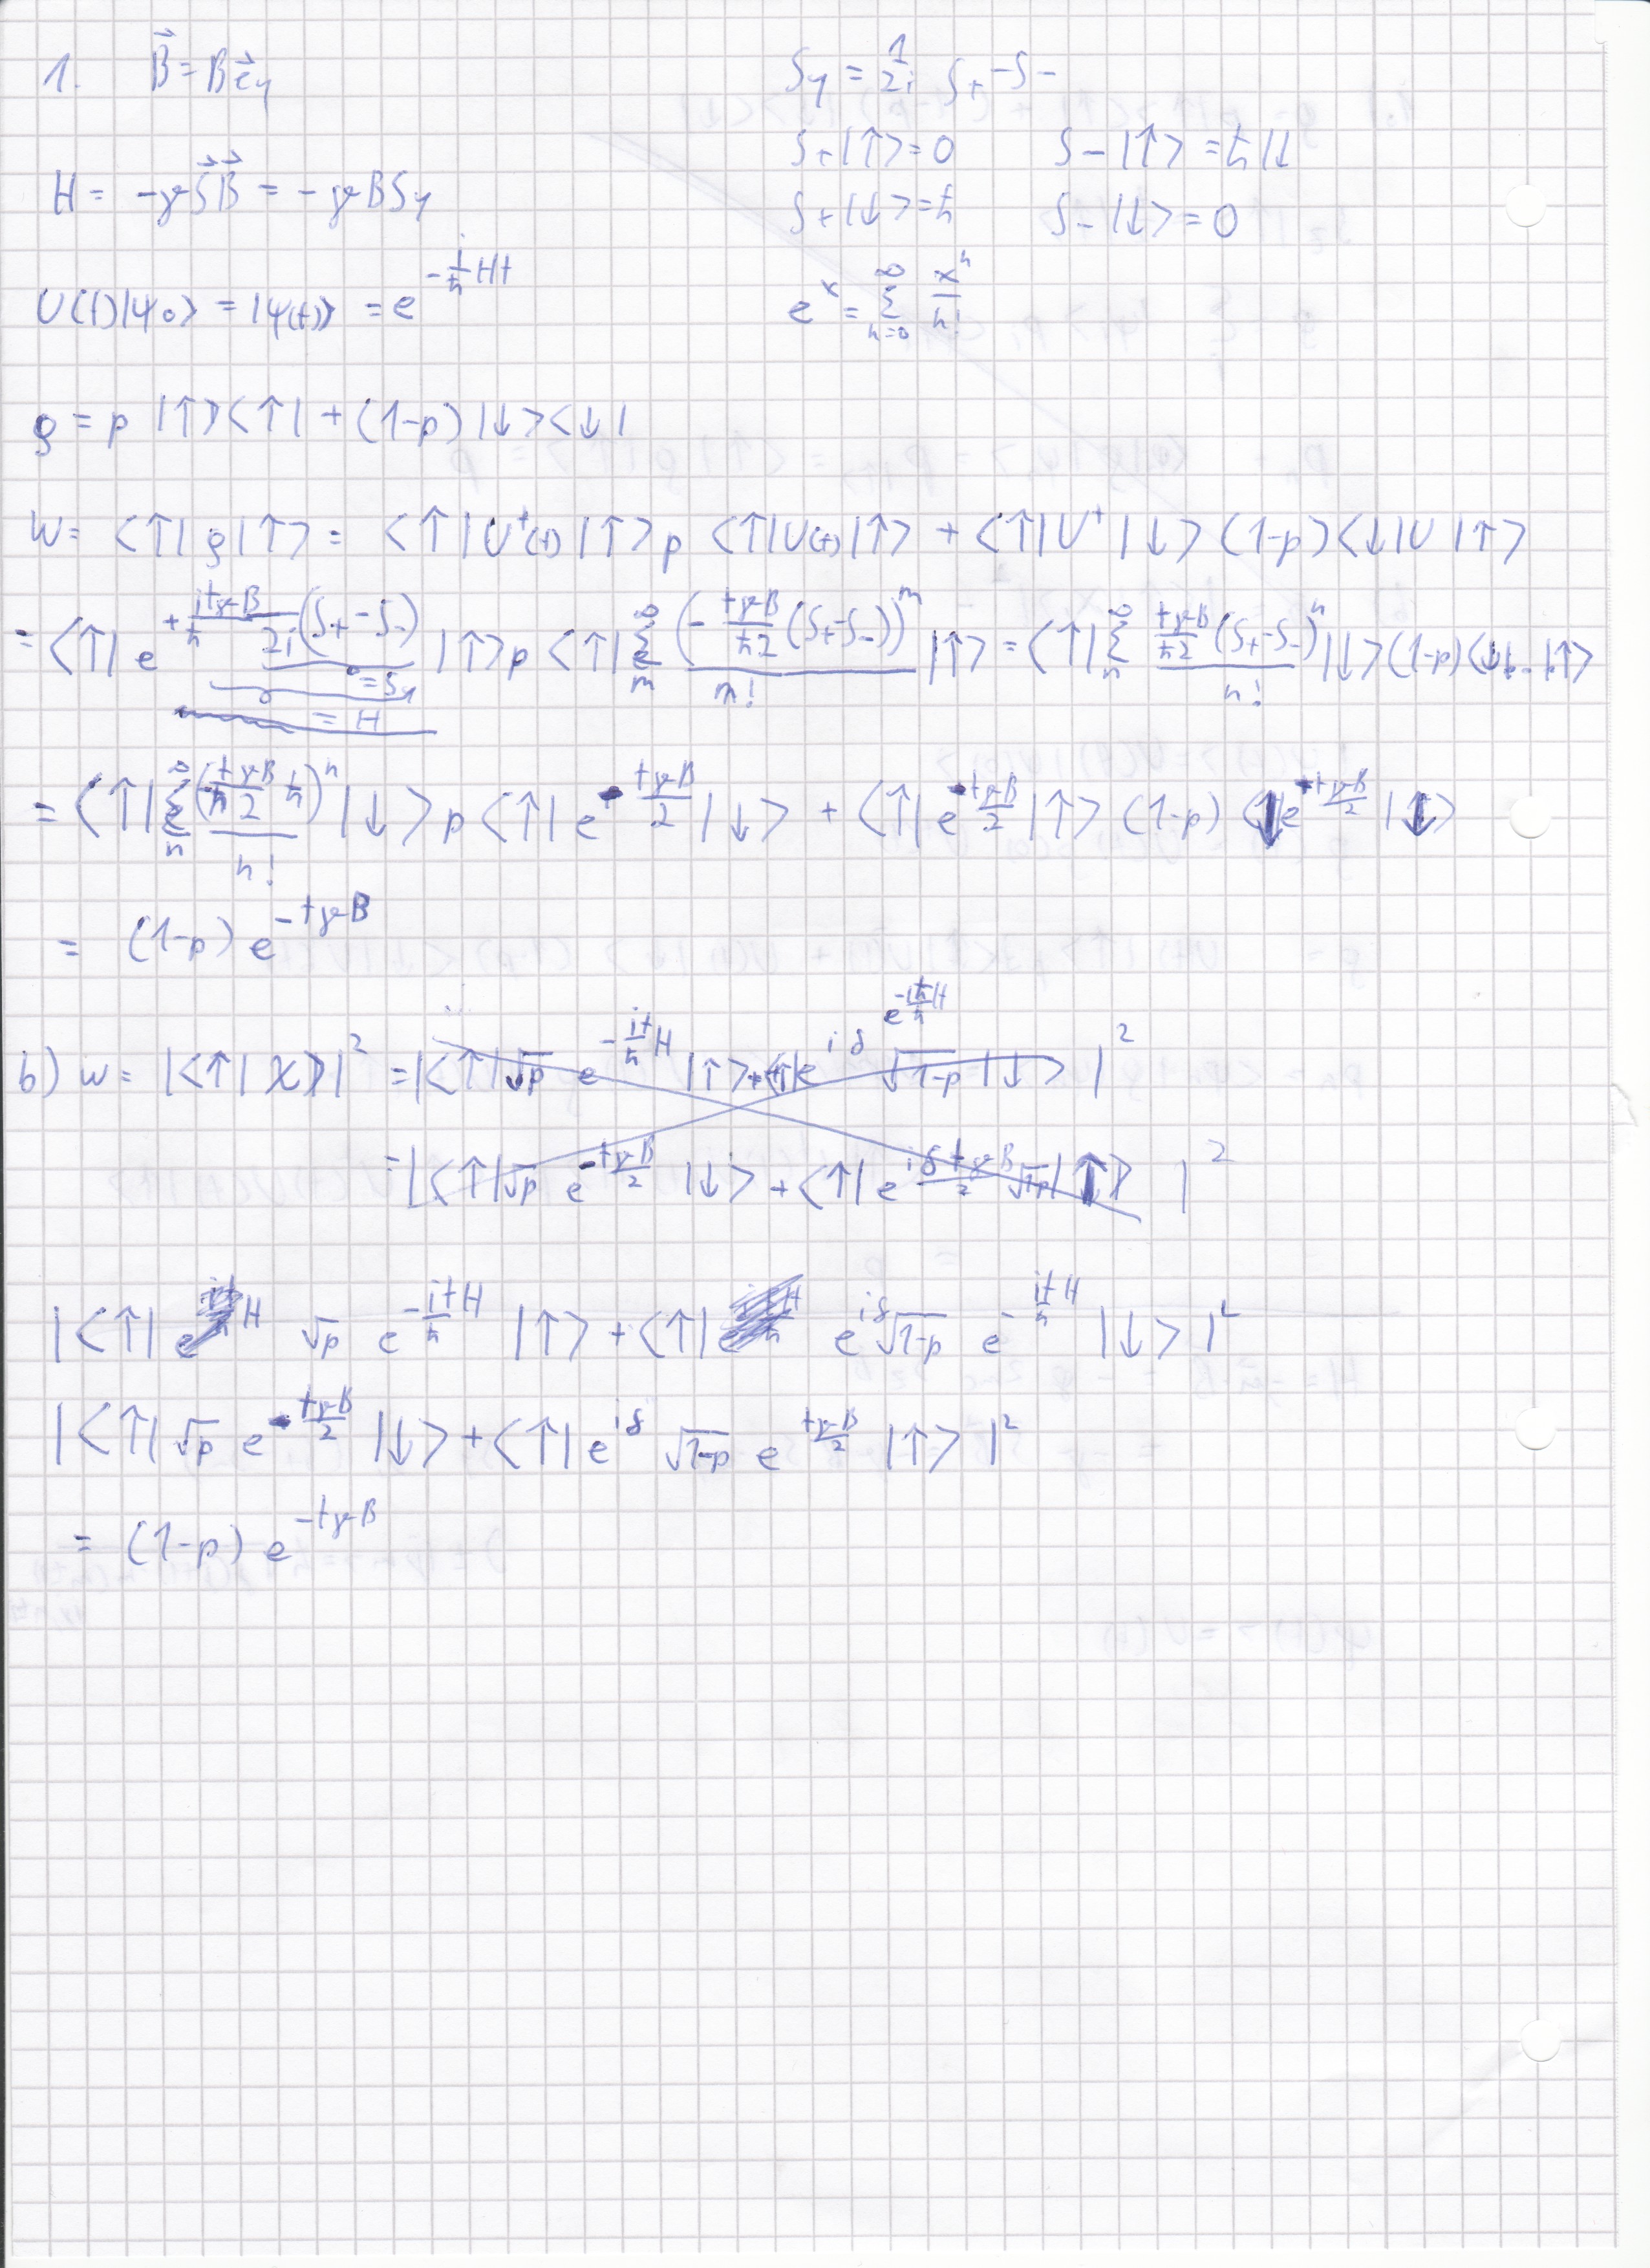 1. B⃗ = B e⃗y
Sy = 1/2i S+ - S-
S+|↑> = 0 S-|↑> = ħ|↓
H = -γ S⃗B⃗ = -γBSy
S+|↓> = ħ S-|↓> = 0
U(t)|ψ0> = |ψ(t)> = e^{-i/ħ Ht}
e^x = Σ_{n=0}^{∞} x^n/n!
ρ = p |↑><↑| + (1-p) |↓><↓|
W = <↑|ρ|↑> = <↑|U†(t)|↑> p <↑|U(t)|↑> + <↑|U†|↓> (1-p) <↓|U|↑>
= <↑| e^{+ itγB/ħ 1/2i (S+ - S-)} |↑> p <↑| Σ_m^∞ (- tγB/ħ2 (S+ - S-))^m / m! |↑> = <↑| Σ_n^∞ tγB/ħ2 (S+ - S-)^n / n! |↓> (1-p) <↓|..|↑>
= Sy
= H
= <↑| Σ_n^∞ (- tγB/ħ2 ħ)^n / n! |↓> p <↑| e^{- tγB/2} |↓> + <↑| e^{- tγB/2} |↑> (1-p) <↓| e^{- tγB/2} |↓>
= (1-p) e^{-tγB}
b) w = |<↑|χ>|² = |<↑|√p e^{-it/ħ H} |↑> + <↑|e^{iδ} e^{-it/ħ H} √1-p |↓> |²
= |<↑|√p e^{- tγB/2} |↓> + <↑| e^{iδ tγB/2} √1-p |↑> |²
|<↑| √p e^{- it/ħ H} |↑> + <↑| e^{iδ} √1-p e^{- it/ħ H} |↓> |²
|<↑| √p e^{- tγB/2} |↓> + <↑| e^{iδ} √1-p e^{tγB/2} |↑> |²
= (1-p) e^{-tγB}